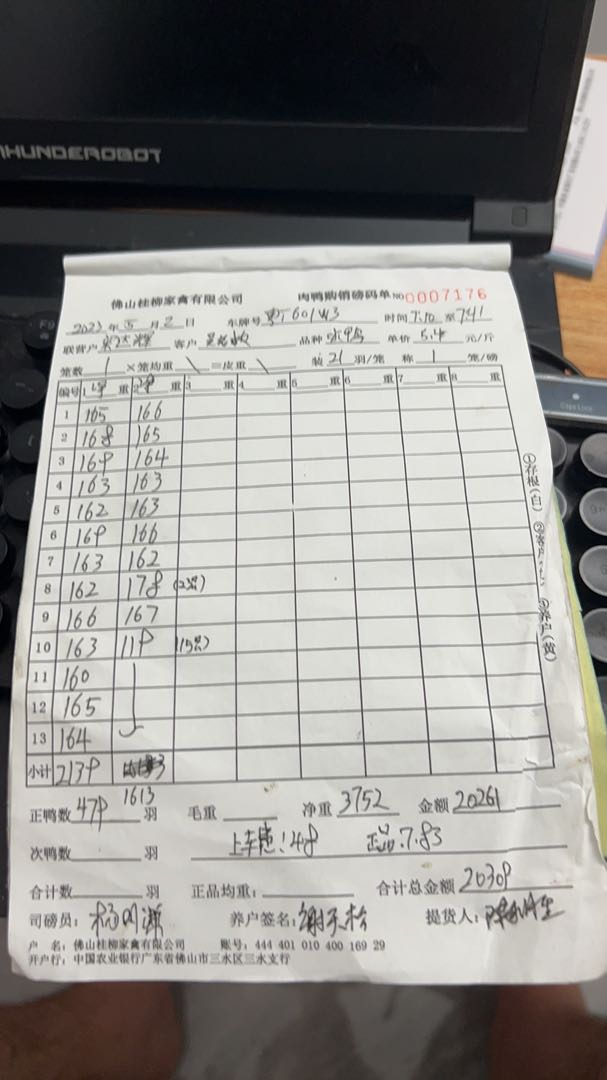 THUNDEROBOT
佛山桂柳家禽有限公司 肉鸭购销磅码单 NO 0007176
2023年5月2日 车牌号 时间 7:10 至 7:41
联营户 客户 品种 单价 5.4 元/斤
笼数 1 ×笼均重 \ =皮重 \ 装 21 羽/笼 称 1 笼/磅
编号 1 净 重 2 净 重 3 重 4 重 5 重 6 重 7 重 8 重
1 165 166
2 168 165
3 169 164
4 163 163
5 162 163
6 169 166
7 163 162
8 162 178 (23只)
9 166 167
10 163 119 (15只)
11 160
12 165
13 164
小计 2139
1613
正鸭数 479 羽 毛重 净重 3752 金额 20261
次鸭数 羽 48 正品:7.83
合计数 羽 正品均重: 合计总金额 20309
司磅员: 养户签名: 提货人:
户 名: 佛山桂柳家禽有限公司 账号: 444 401 010 400 169 29
开户行: 中国农业银行广东省佛山市三水区三水支行
①存根(白) ②客户 ③养户(黄)
Caps Lock